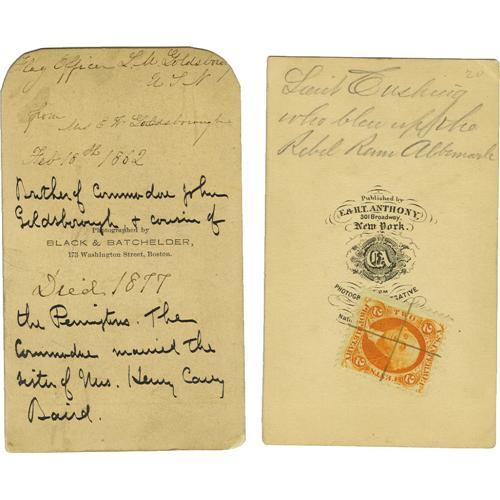 Flag Officer L. M. Goldsborough
U S N
from
Mrs E W Goldsborough
Feb 18th 1862
Brother of Commodore John
Goldsborough & cousin of
Photographed by
BLACK & BATCHELDER,
173 Washington Street, Boston.
Died 1877
the Penningtons. The
Commodore married the
sister of Mrs. Henry Carey
Baird.
20
Lieut Cushing
who blew up the
Rebel Ram Albemarle
Published by
E. & H.T. ANTHONY,
501 Broadway,
New York.
EA
PHOTOGRAPHIC